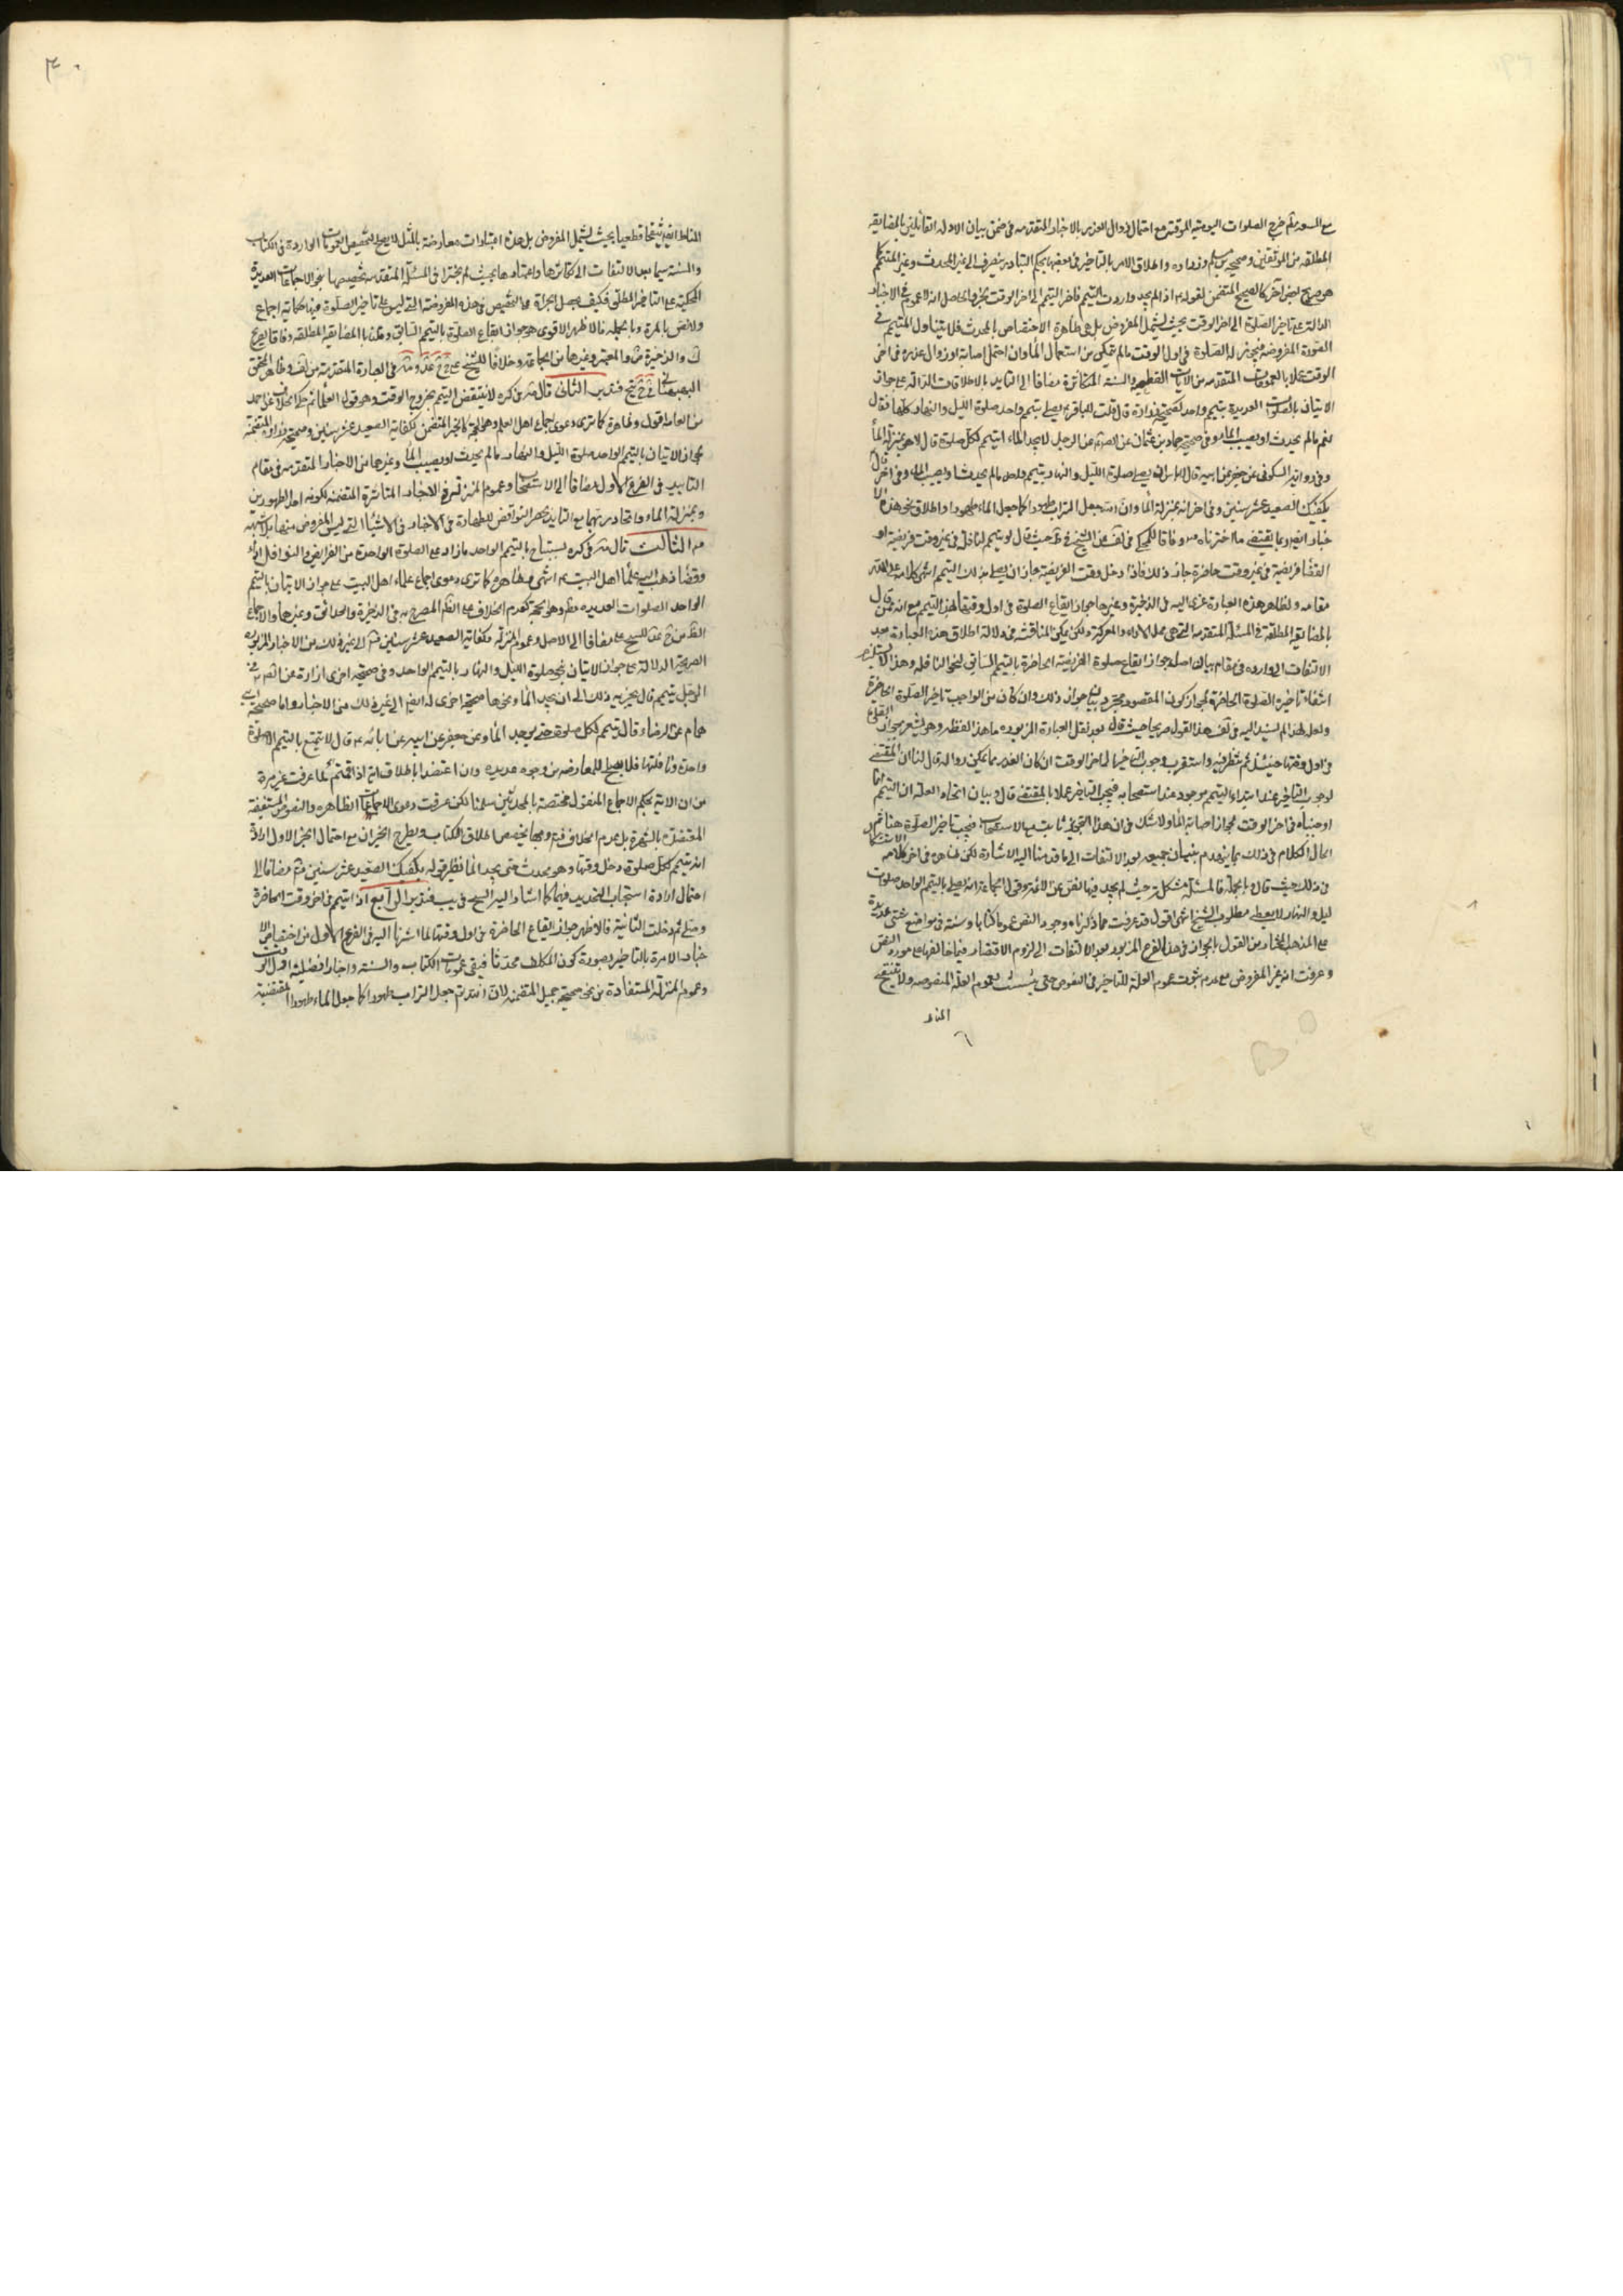 مع السعة ثم خرج الصلوات اليومية الموقتة مع احتمال زوال العذر بالاخبار المتقدمة في ضمن بيان الادلة القائلين بالمضايقة
المطلقة من الموثقين وصحيحة بن مسلم وزرارة واطلاق الامر بالتاخير في بعضها بحكم التبادر ينصرف الى غير المحدث وغير المتيمم كما
هو صريح بعض آخر كالصحيح المتضمن لقوله اذا لم يجد واردت التيمم فاخر التيمم الى اخر الوقت والحاصل انه لا عموم في الاخبار
الدالة على تاخير الصلوة الى اخر الوقت بحيث يشمل المفروض بل هي ظاهرة الاختصاص بالمحدث فلا يتناول المتيمم في
الصورة المفروضة فيجوز له الصلوة في اول الوقت مالم يتمكن من استعمال الماء وان احتمل اصابته او زوال عذره في اخر
الوقت عملا بالعمومات المتقدمة من الايات القطعية والسنة المتكاثرة مضافا الى التاييد بالاطلاقات الدالة على جواز
الاتيان بالصلوات العديدة بتيمم واحد كصحيحة زرارة قال قلت للباقر يصلي بتيمم واحد صلوة الليل والنهار كلها فقال
نعم مالم يحدث او يصيب الماء وفي صحيحة حماد بن عثمان عن الصادق عن الرجل لا يجد الماء ايتيمم لكل صلوة قال لا هو بمنزلة الماء
وفي رواية السكوني عن جعفر عن ابيه قال لا باس ان يصلي صلوة الليل والنهار بتيمم واحد مالم يحدث او يصيب الماء وفي اخر قال
يكفيك الصعيد عشر سنين وفي اخر انه بمنزلة الماء وان الله جعل التراب طهورا كما جعل الماء طهورا واطلاق نحو هذه الا
خبار ايضا وبما يقتضي ما اخترناه وفاقا للمحكي في لف عن الشيخ في ط حيث قال لو تيمم لنافلة في غير وقت فريضة او
القضا فريضة في غير وقت حاضرة جاز ذلك فاذا دخل وقت الفريضة جاز ان يصلي بذلك التيمم انتهى كلامه
مقامه ولظاهر هذه العبارة عزى اليه في الذخيرة وغيرها جواز ايقاع الصلوة في اول وقتها لهذا التيمم مع انه ممن قال
بالمضايقة المطلقة في المسئلة المتقدمة ولكن يمكن المناقشة في دلالة اطلاق هذه العبارة بعد
الالتفات الى وارده في مقام بيان اصل جواز ايقاع صلوة الفريضة الحاضرة بالتيمم السابق لنحو النافلة وهذا لا يستلزم
انتفاء تاخير الصلوة الحاضرة لجواز كون المقصود مجرد بيان جواز ذلك وان كان من الواجب تاخير الصلوة الحاضرة
ولعل لهذا لم يسند اليه في لف هذا القول صريحا حيث قال بعد نقل العبارة المزبورة ما هذا لفظه وهو يشعر بجواز الصلوة
في اول وقتها حينئذ ثم نظر فيه واستقرب وجوب التاخير الى اخر الوقت ان كان العذر مما يمكن زواله قال لنا ان المقتضي
لوجوب التاخير عند ابتداء التيمم موجود عند استصحابه فيجب التاخير عملا بالمقتضي قال وبيان اتحاد العلة ان التيمم انما
اوجبناه في اخر الوقت لجواز اصابة الماء ولا شك في ان هذا التجويز ثابت مع الاستصحاب فيجب تاخير الصلوة هنا ثم
اطال الكلام في ذلك بما ينهدم بنيان جميعه بعد الالتفات الى ما قدمنا اليه الاشارة لكن ظاهره في اخر كلامه الاستشكال
في ذلك حيث قال وبالجملة فالمسئلة مشكلة حيث لم يجد فيها نص عن الائمة وقول الجماعة انه يصلي بالتيمم الواحد صلوات
ليل والنهار لا يعطي مطلوب الشيخ انتهى اقول قد عرفت مما ذكرناه وجود النص عموما كتابا وسنة في مواضع شتى عديدة
على المذهب المختار من القول بالجواز في هذا الفرع المزبور بعد الالتفات الى لزوم الاقتصار فيما خالفها على مورد النص
وعرفت انه غير المفروض مع عدم ثبوت عموم العلة للتاخير في النصوص حتى يتمسك بعموم العلة المنصوصة ولا تنقيح
المناط
المناط ايضا تنقيحا قطعيا بحيث يشمل المفروض بل هذه اعتبارات معارضة بالمثل لا يصلح لتخصيص العمومات الواردة في الكتاب
والسنة سيما بعد الالتفات الى تكاثرها واعتبارها بحيث لم يجترا في المسئلة المتقدمة بتخصيصها بنحو الاجماعات العديدة
المحكية على التاخير المطلق فكيف يحصل الجراة مما التخصيص في هذه المفروضة التي ليس على تاخير الصلوة فيها حكاية اجماع
ولا نص بالمرة وبالجملة فالاظهر الاقوى هو جواز ايقاع الصلوة بالتيمم السابق وقلنا بالمضايقة المطلقة وفاقا لصريح
ك والذخيرة والمعتبر وغيرها من الجماعة وخلافا للشيخ في العبارة المتقدمة من لف وظاهر المحقق
البهبهاني في فتدبر الثاني قال في كره لا ينتقض التيمم بخروج الوقت وهو قول العلمائنا ثم حكى الخلاف عن احمد
من العامة اقول وظاهره كما ترى دعوى اجماع اهل العلم وهو الحجة كالخبر المتضمن لكفاية الصعيد عشر سنين وصحيحة زرارة المتضمنة
لجواز الاتيان بالتيمم الواحد صلوة الليل والنهار مالم يحدث او يصيب الماء وغيرها من الاخبار المتقدمة في مقام
التاييد في الفرع الاول مضافا الى الاستصحاب وعموم المنزلة في الاخبار المتاثرة المتضمنة لكونه احد الطهورين
وبمنزلة الماء واتحاد ربهما مع التاييد بحصر النواقض للطهارة في الاخبار في الاشياء التي ليس المفروض منها بلا شبهة
الثالث قال في كره يستباح بالتيمم الواحد مازاد على الصلوة الواحدة من الفرايض والنوافل اداء
وقضاء ذهب اليه علماء اهل البيت انتهى وظاهره كما ترى دعوى اجماع علماء اهل البيت على جواز الاتيان بالتيمم
الواحد الصلوات العديدة وهو الحجة كعدم الخلاف على الظاهر المصرح به في الذخيرة والحدائق وغيرها والاجماع
مضافا الى الاصل وعموم المنزلة وكفاية الصعيد عشر سنين الى غير ذلك من الاخبار المزبورة
الصريحة الدلالة على جواز الاتيان بنحو صلوة الليل والنهار بالتيمم الواحد وفي صحيحة اخرى لزرارة عن في
الرجل يتيمم قال يجزيه ذلك الى ان يجد الماء ونحوها صحيحة اخرى له ايضا الى غير ذلك من الاخبار واما صحيحة ابي
همام عن الرضاء قال يتيمم لكل صلوة حتى يوجد الماء وعن جعفر عن ابيه عن ابائه قال لا يتمتع بالتيمم الا صلوة
واحدة ونافلتها فلا يصلح للمعارضة من وجوه عديدة وان اعتضدا باطلاق اية اذا قمتم لما عرفت غير مرة
من ان الاية بحكم الاجماع المنقول مختصة بالمحدثين سلمنا لكن عرفت دعوى الاجماعات الظاهرة والنصوص المستفيضة
المعتضدة بالشهرة بل عدم الخلاف وبها يخصص اطلاق الكتاب ويطرح الخبران مع احتمال الخبر الاول ارادة
انه يتيمم لكل صلوة دخل وقتها وهو محدث حتى يجد الماء نظير قوله يكفيك الصعيد عشر سنين مضافا الى
احتمال ارادة استحباب التجديد فيهما كما اشار اليه الشيخ في يب فتدبر الرابع اذا تيمم في اخر وقت الحاضرة
وصلى ثم دخلت الثانية فالاظهر جواز ايقاع الحاضرة في اول وقتها لما اشرنا اليه في الفرع الاول من اختصاص الا
خبار الامرة بالتاخير بصورة كون المكلف محدثا فيبقى عمومات الكتاب والسنة واخبار افضلية اول الوقت
وعموم المنزلة المستفادة من نحو صحيحة جميل المتضمنة لان الله جعل التراب طهورا كما جعل الماء طهورا المقتضية